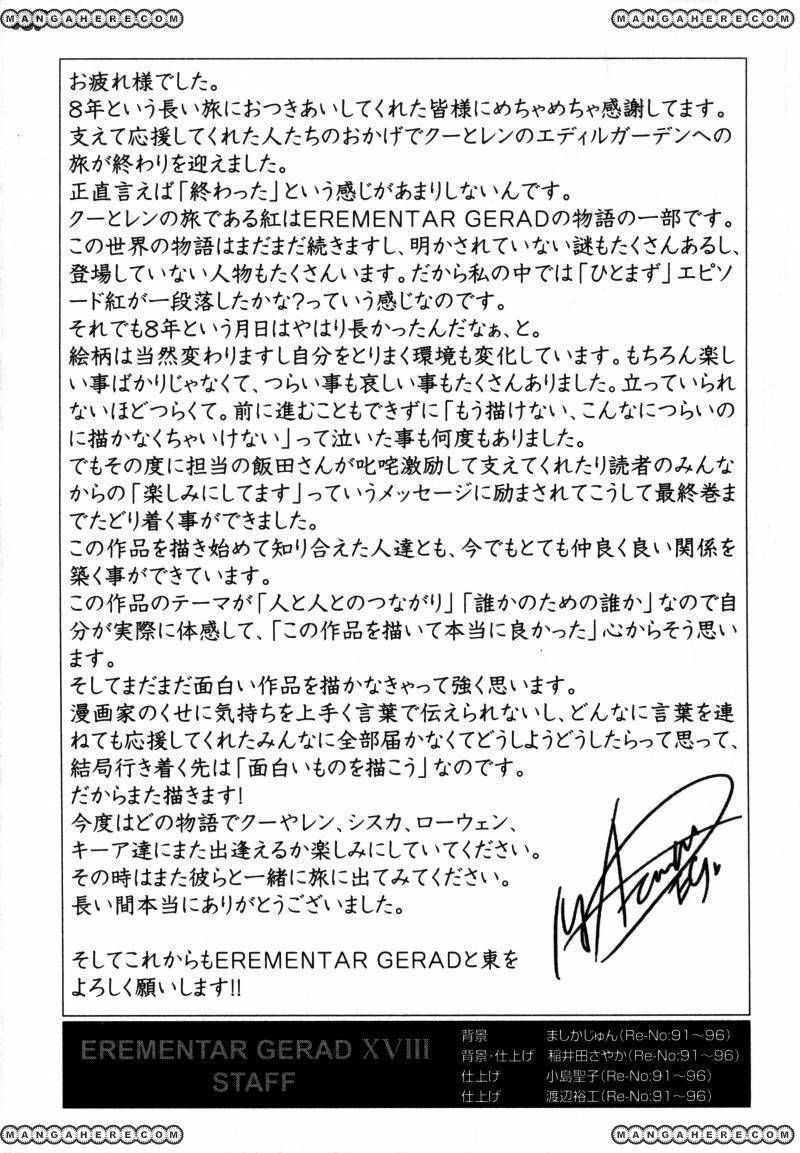 MANGAHERE.COM MANGAHERE.COM
お疲れ様でした。
8年という長い旅におつきあいしてくれた皆様にめちゃめちゃ感謝してます。
支えて応援してくれた人たちのおかげでクーとレンのエディルガーデンへの
旅が終わりを迎えました。
正直言えば「終わった」という感じがあまりしないんです。
クーとレンの旅である紅はEREMENTAR GERADの物語の一部です。
この世界の物語はまだまだ続きますし、明かされていない謎もたくさんあるし、
登場していない人物もたくさんいます。だから私の中では「ひとまず」エピソ
ード紅が一段落したかな?っていう感じなのです。
それでも8年という月日はやはり長かったんだなぁ、と。
絵柄は当然変わりますし自分をとりまく環境も変化しています。もちろん楽し
い事ばかりじゃなくて、つらい事も哀しい事もたくさんありました。立っていられ
ないほどつらくて。前に進むこともできずに「もう描けない、こんなにつらいの
に描かなくちゃいけない」って泣いた事も何度もありました。
でもその度に担当の飯田さんが叱咤激励して支えてくれたり読者のみんな
からの「楽しみにしてます」っていうメッセージに励まされてこうして最終巻ま
でたどり着く事ができました。
この作品を描き始めて知り合えた人達とも、今でもとても仲良く良い関係を
築く事ができています。
この作品のテーマが「人と人とのつながり」「誰かのための誰か」なので自
分が実際に体感して、「この作品を描いて本当に良かった」心からそう思い
ます。
そしてまだまだ面白い作品を描かなきゃって強く思います。
漫画家のくせに気持ちを上手く言葉で伝えられないし、どんなに言葉を連
ねても応援してくれたみんなに全部届かなくてどうしようどうしたらって思って、
結局行き着く先は「面白いものを描こう」なのです。
だからまた描きます!
今度はどの物語でクーやレン、シスカ、ローウェン、
キーア達にまた出逢えるか楽しみにしていてください。
その時はまた彼らと一緒に旅に出てみてください。
長い間本当にありがとうございました。
そしてこれからもEREMENTAR GERADと東を
よろしく願いします!!
EREMENTAR GERAD XVIII
STAFF
背景 ましかじゅん(Re-No:91~96)
背景・仕上げ 稲井田さやか(Re-No:91~96)
仕上げ 小島聖子(Re-No:91~96)
仕上げ 渡辺裕工(Re-No:91~96)
MANGAHERE.COM MANGAHERE.COM